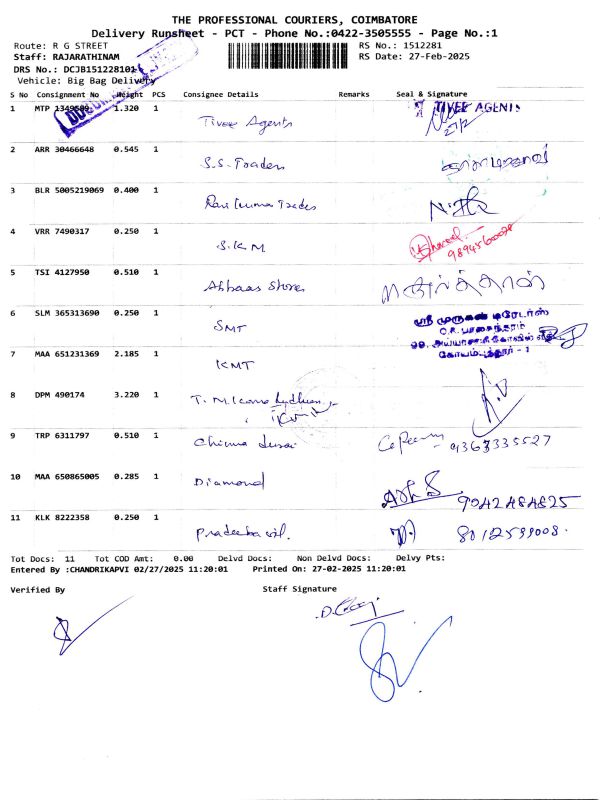 THE PROFESSIONAL COURIERS, COIMBATORE
Delivery Runsheet - PCT - Phone No.:0422-3505555 - Page No.:1
Route: R G STREET RS No.: 1512281
Staff: RAJARATHINAM RS Date: 27-Feb-2025
DRS No.: DCJB151228101
Vehicle: Big Bag Delivery
S No Consignment No Weight PCS Consignee Details Remarks Seal & Signature
1 MTP 1.320 1 Tivee Agents TIVEE AGENTS
27/2
2 ARR 30466648 0.545 1 S.S. Traders
3 BLR 5005219069 0.400 1 Ravi Kumar Trades
4 VRR 7490317 0.250 1 S.K.M
5 TSI 4127950 0.510 1 Abbaas Stores
6 SLM 365313690 0.250 1 SMT ஸ்ரீ முருகன் டிரேடர்ஸ்
கோயம்புத்தூர் - 1
7 MAA 651231369 2.185 1 KMT
8 DPM 490174 3.220 1 T. M.
9 TRP 6311797 0.510 1 Chinna durai 9363335527
10 MAA 650865005 0.285 1 Diamond 9042484825
11 KLK 8222358 0.250 1 8012599008.
Tot Docs: 11 Tot COD Amt: 0.00 Delvd Docs: Non Delvd Docs: Delvy Pts:
Entered By :CHANDRIKAPVI 02/27/2025 11:20:01 Printed On: 27-02-2025 11:20:01
Verified By Staff Signature